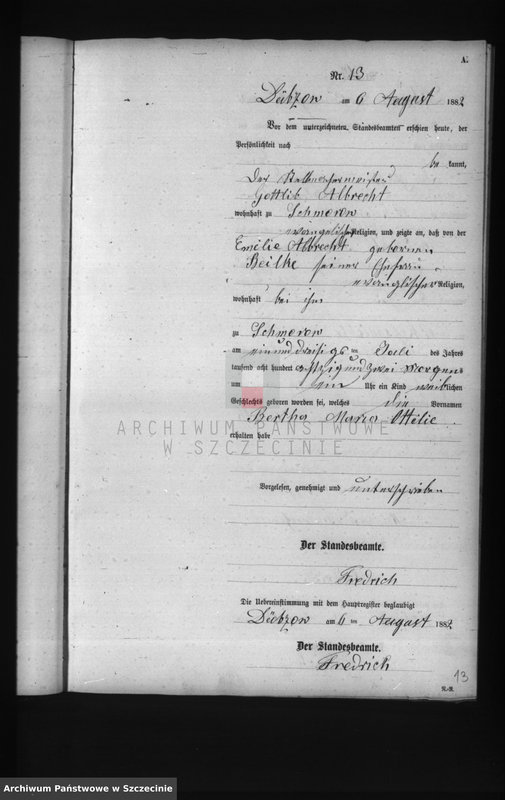 A.
Nr. 13
Dübzow am 6 August 1882
Vor dem unterzeichneten Standesbeamten erschien heute, der
Persönlichkeit nach
be kannt,
Der
Gottlib Albrecht
wohnhaft zu Schmorow
evangelischer Religion, und zeigte an, daß von der
Emilie Albrecht gebornen
Beilke seiner Ehefrau
evanglischer Religion,
wohnhaft bei ihm
zu Schmorow
am einunddreisigsten Juli des Jahres
tausend acht hundert achtzig und zwei Morgens
um ein Uhr ein Kind weiblichen
Geschlechts geboren worden sei, welches die Vornamen
Bertha Maria Ottilie
erhalten habe
ARCHIWUM PAŃSTWOWE
W SZCZECINIE
Vorgelesen, genehmigt und unterschrieben
Der Standesbeamte.
Fredrich
Die Uebereinstimmung mit dem Hauptregister beglaubigt
Dübzow am 6 ten August 1882
Der Standesbeamte.
Fredrich
13
N.-R.
Archiwum Państwowe w Szczecinie